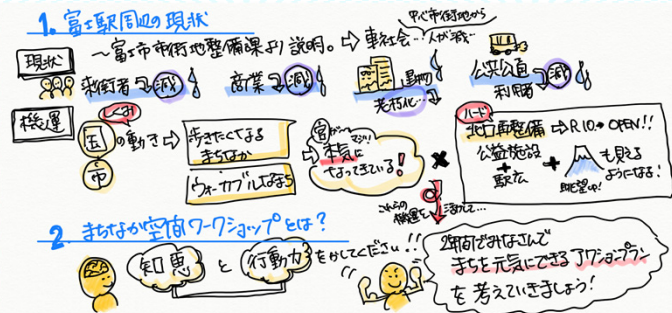 1. 富士駅周辺の現状
中心市街地から
現状 ～富士市市街地整備課より説明。⇨ 車社会… 人が減…
来街者 減 商業 減 建物 老朽化… 公共交通 利用者 減
機運 しくみ 国の動き ⇨ 歩きたくなる まちなか
市 ウォーカブルなまち
官が… マジに! 本気に なってきている!
×
ハード
北口再整備 ⇨ R10.→OPEN!!
公益施設 + 駅広 + も見える ようになる!
眺望中!
これらの 機運を 活かして…
2. まちなか空間ワークショップとは?
知恵 と 行動力 をかしてください!!
2年間でみなさんで
まちを元気にできるアクションプラン
を考えていきましょう!